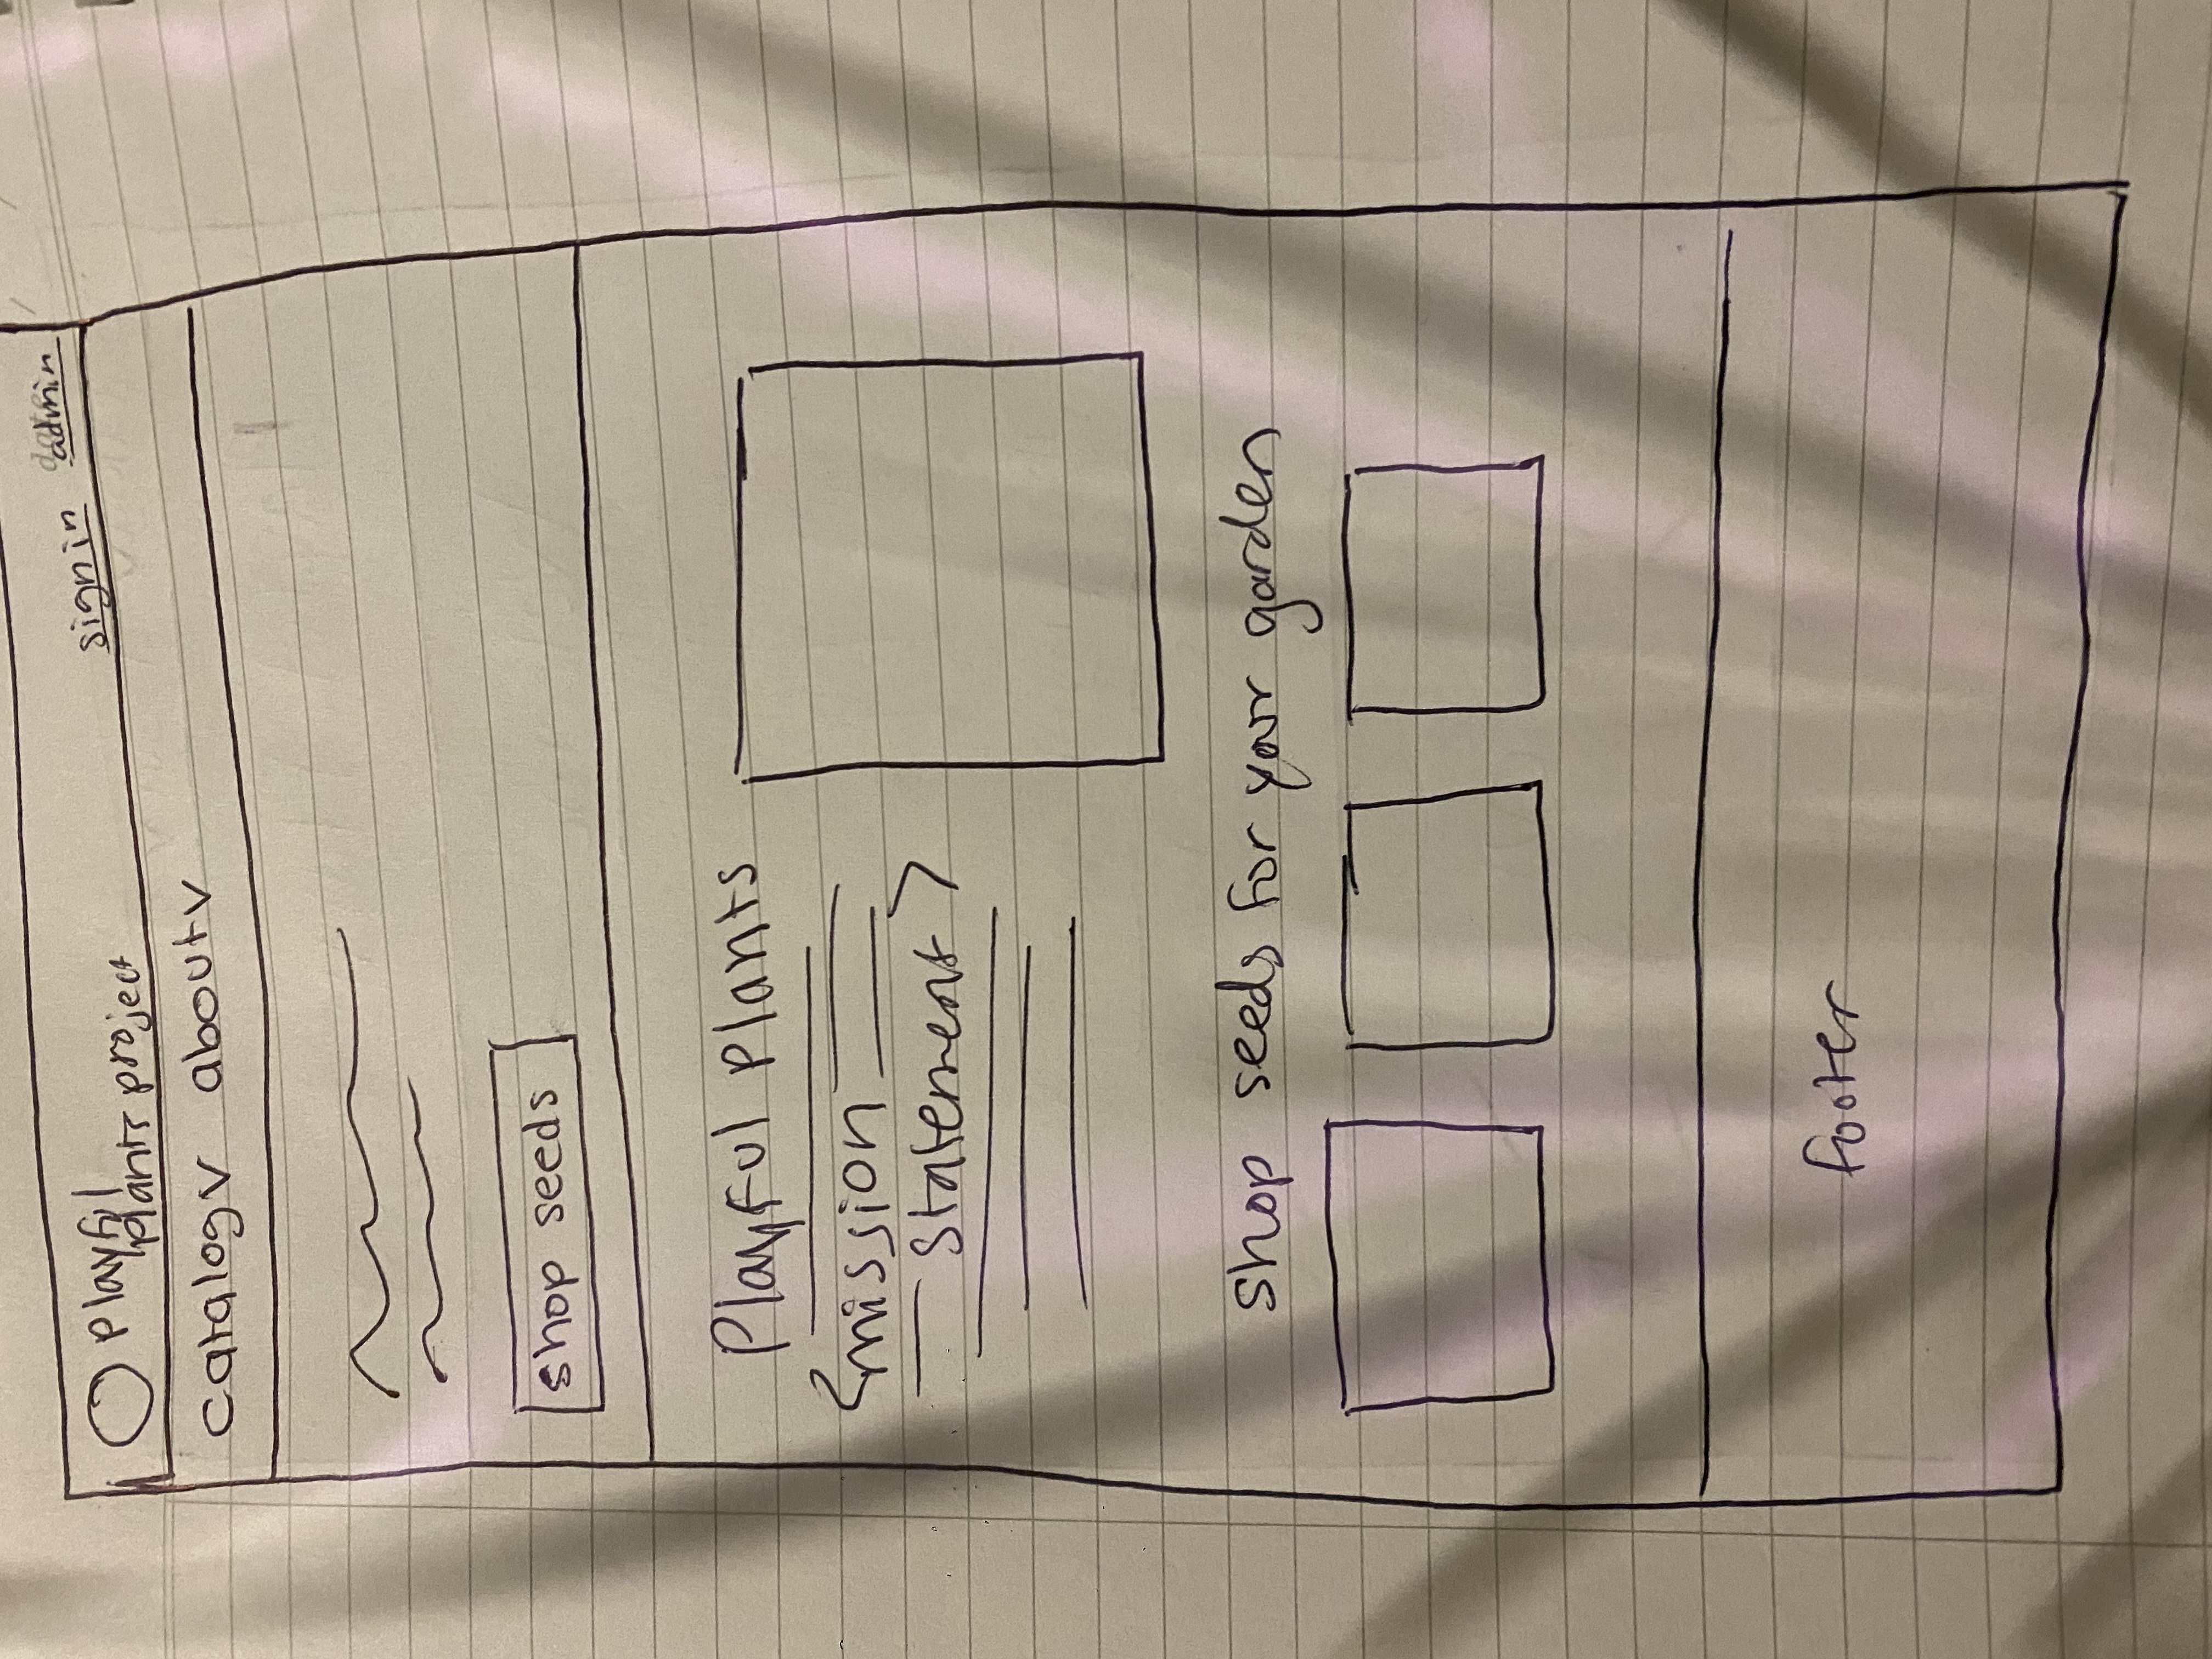 Playful
plants project
sign in admin
catalog v about v
shop seeds
Playful Plants
<mission
statement>
shop seeds for your garden
footer